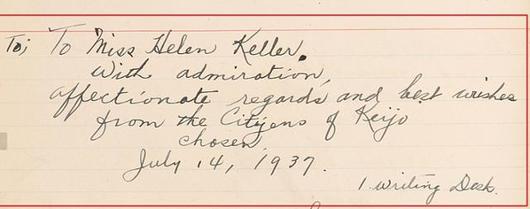 To; To Miss Helen Keller.
With admiration,
affectionate regards and best wishes
from the Citizens of Keijo
chosen
July 14, 1937.
1 writing Desk.